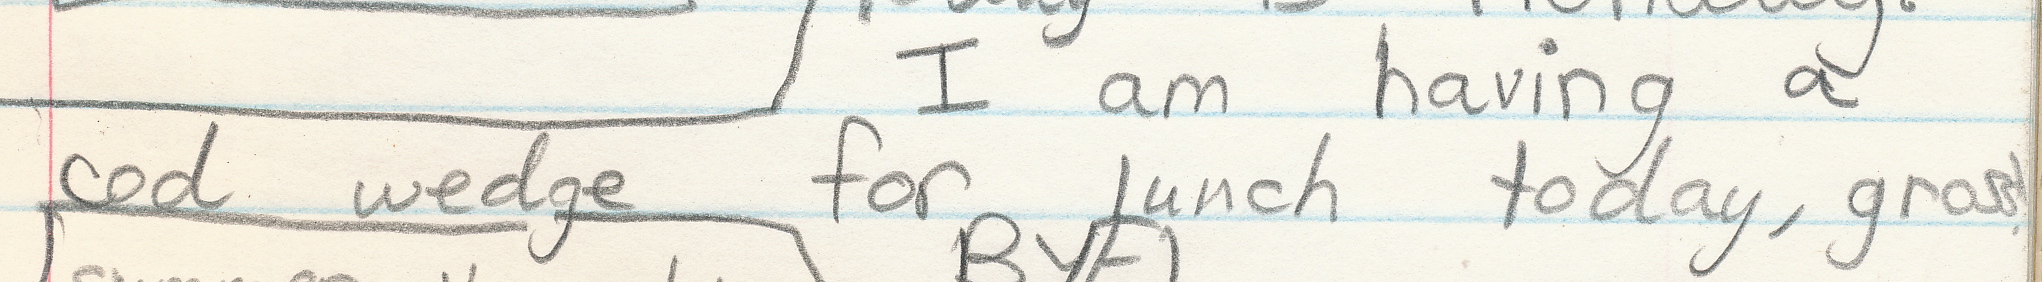 I am having a
cod wedge for lunch today, gross!
BYE!